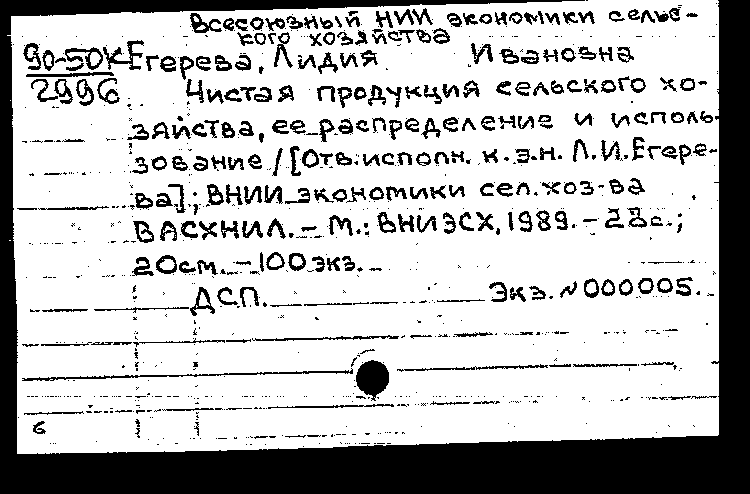 Всесоюзный НИИ экономики сельс-
кого хозяйства
90-50К Егерева, Лидия Ивановна
2996 Чистая продукция сельского хо-
зяйства, ее распределение и исполь-
зование / [Отв. исполн. к.э.н. Л.И. Егере-
ва]; ВНИИ экономики сел. хоз-ва
ВАСХНИЛ. – М.: ВНИЭСХ, 1989. – 28 с.;
20 см. – 100 экз.
ДСП. Экз. № 000005.
6